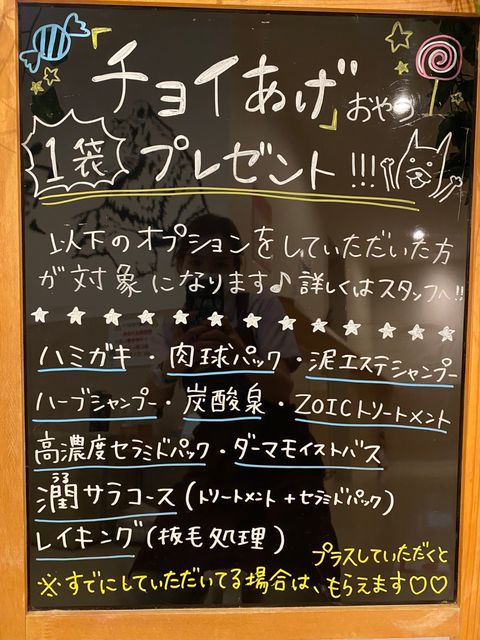 「チョイあげ」おやつ
1袋 プレゼント!!!
以下のオプションをしていただいた方
が対象になります♪詳しくはスタッフへ!!
ハミガキ・肉球パック・泥エステシャンプー
ハーブシャンプー・炭酸泉・ZOICトリートメント
高濃度セラミドパック・ダーマモイストバス
潤サラコース(トリートメント+セラミドパック)
うる
レイキング(抜毛処理)
プラスしていただくと
※すでにしていただいてる場合は、もらえます♡♡